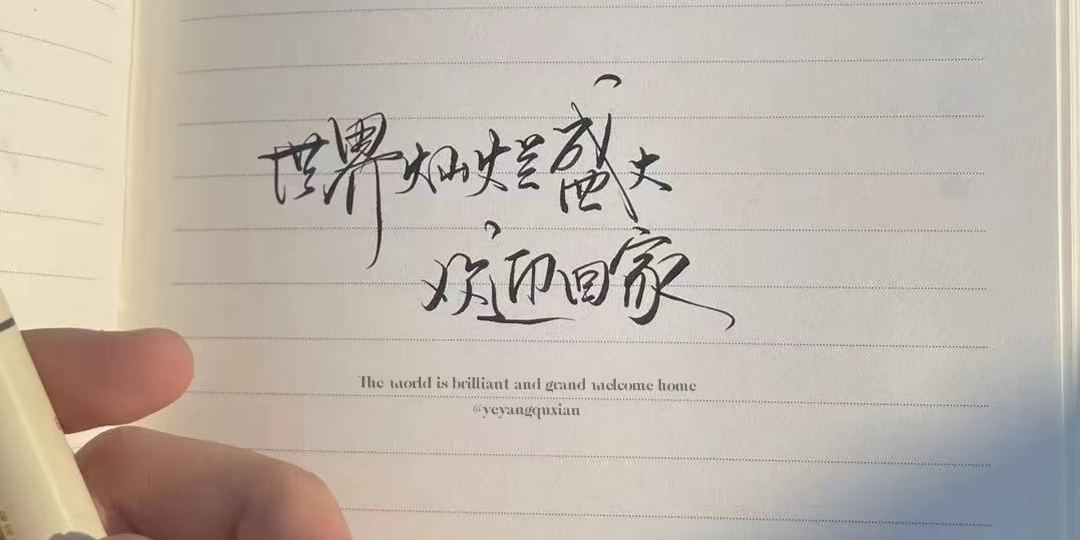 世界灿烂盛大
欢迎回家
The world is brilliant and grand welcome home
@yeyangquxian